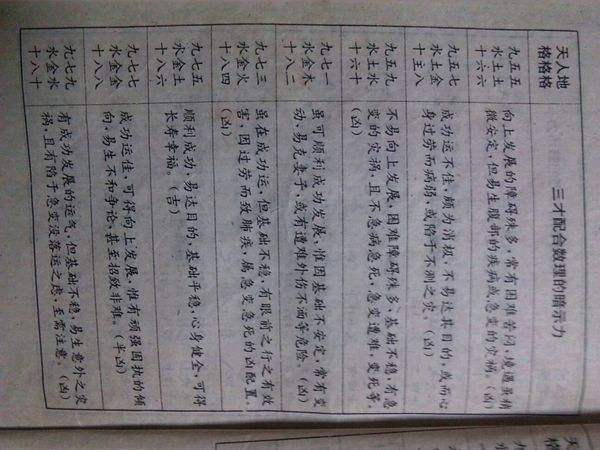 天人地
格格格
三才配合数理的暗示力
九五五
水土土
十六六
向上发展的障碍殊多,常有困难苦闷,境遇易稍
微安定,但易生腹部的疾病或急变的灾祸。(凶)
九五七
水土金
十土八
成功运不佳,颇为消极,不易达其目的,或而心
身过劳而病弱,或陷乎不测之灾。(凶)
九五九
水土水
十六十
不易向上发展,困难障碍殊多,基础不稳,有急
变的灾祸,且不急病急死,急变遭难,变死等。
(凶)
九七一
水金木
十八二
虽可顺利成功发展,惟因基础不安定,常有变
动,易克妻子,或有遭难外伤不面等危险。(凶)
九七三
水金火
十八四
虽在成功运,但基础不稳,有眼前之行之有效
害,因过劳而致肺疾,属急变急死的凶配置。
(凶)
九七五
水金土
十八六
顺利成功,易达目的,基础平稳,心身健全,可得
长寿幸福。(吉)
九七七
水金金
十八八
成功运佳,可得向上发展,惟有顽强固执的倾
向,易生不和争论,甚至招致非难。(半凶)
九七九
水金水
十八十
有成功发展的运气,但基础不稳,易生意外之灾
祸,且有陷于急变没落运之虑,至需注意。(凶)